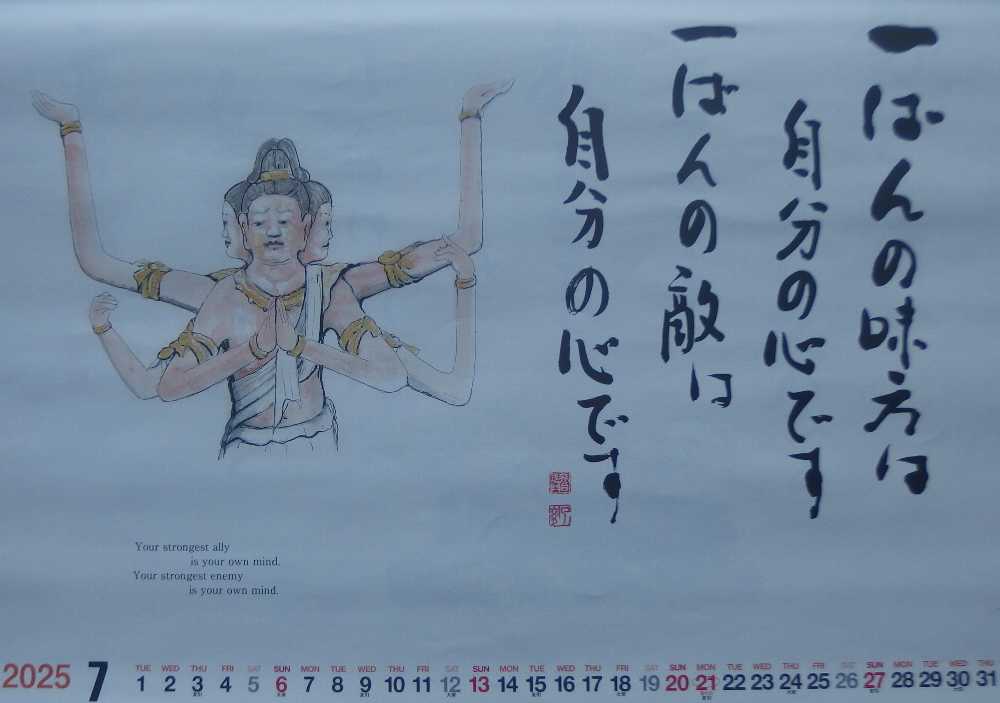 一ばんの味方は
自分の心です
一ばんの敵は
自分の心です
Your strongest ally
is your own mind.
Your strongest enemy
is your own mind.
2025 7
TUE WED THU FRI SAT SUN MON TUE WED THU FRI SAT SUN MON TUE WED THU FRI SAT SUN MON TUE WED THU FRI SAT SUN MON TUE WED THU
1 2 3 4 5 6 7 8 9 10 11 12 13 14 15 16 17 18 19 20 21 22 23 24 25 26 27 28 29 30 31